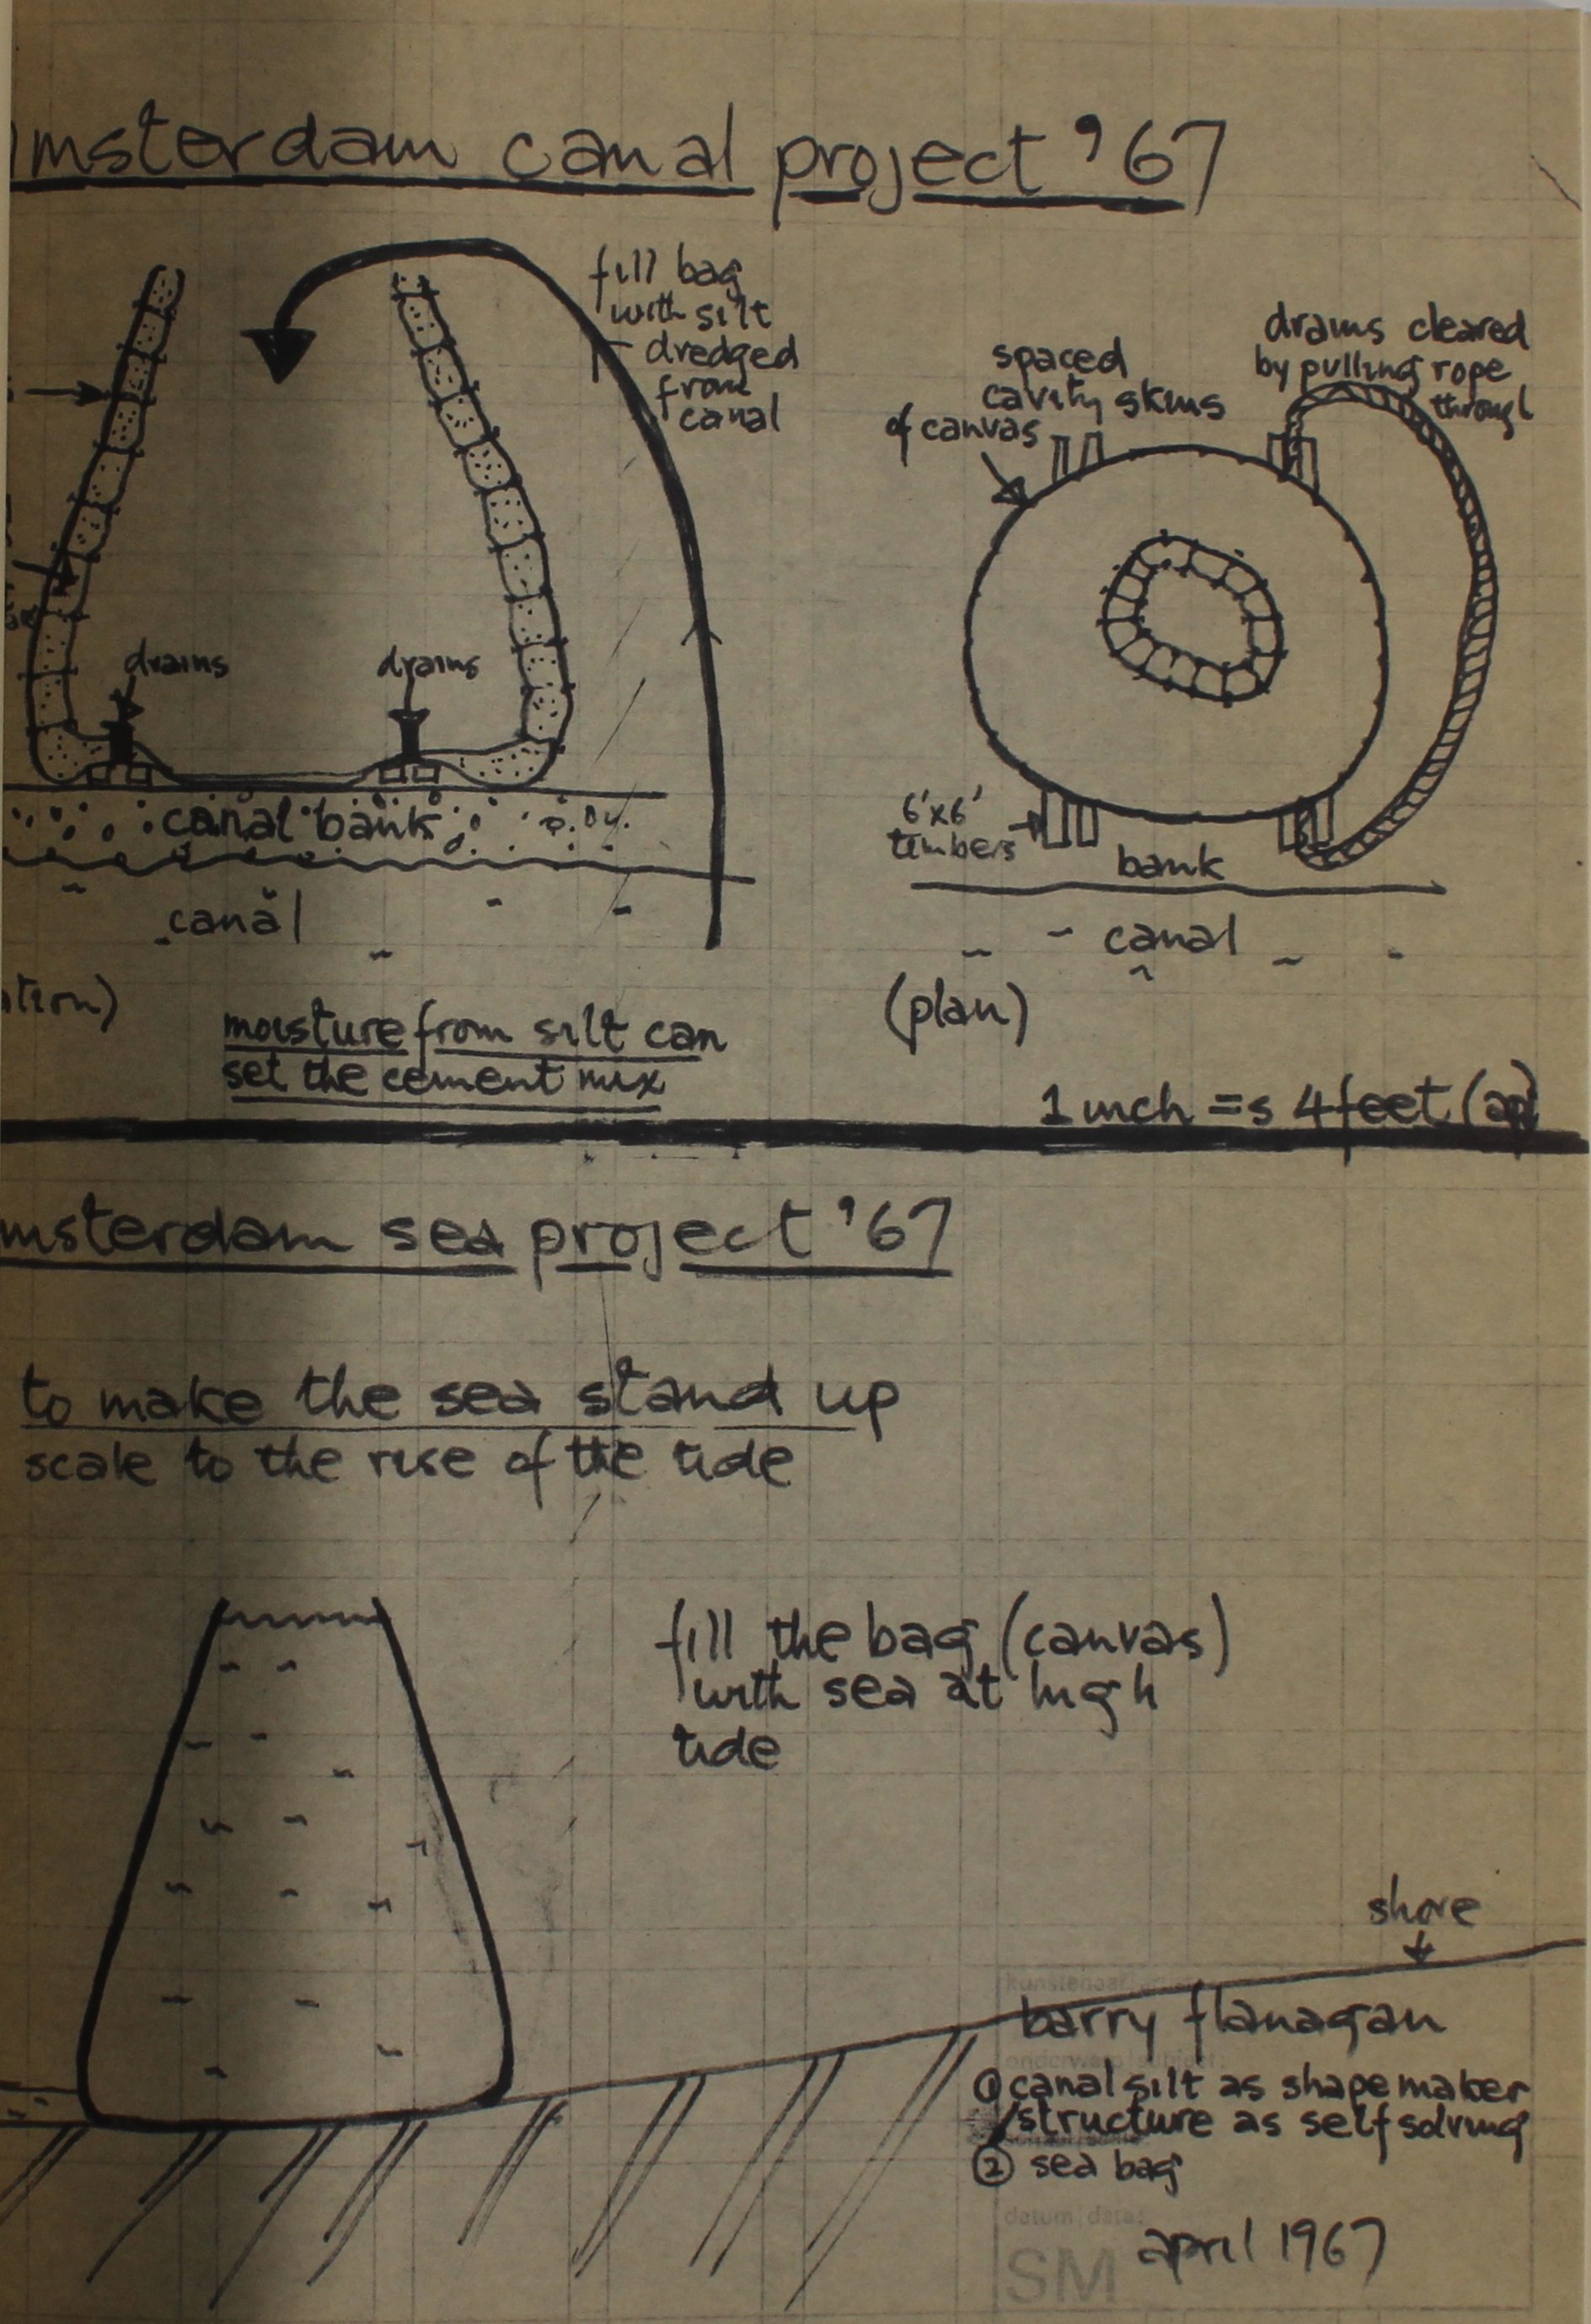 amsterdam canal project '67
fill bag
with silt
dredged
from
canal
spaced
cavity skins
of canvas
drains cleared
by pulling rope
through
drains
drains
canal bank
canal
6'x6'
timbers
bank
canal
(plan)
moisture from silt can
set the cement mix
1 inch =s 4 feet (ap
msterdam sea project '67
to make the sea stand up
scale to the rise of the tide
fill the bag (canvas)
with sea at high
tide
shore
kunstenaar
barry flanagan
onderwerp subject:
① canal silt as shape maker
/structure as self solving
② sea bag
datum date:
april 1967
SM